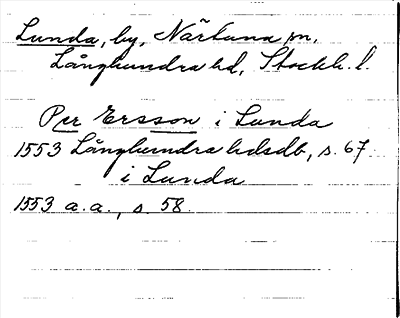 Lunda, by, Närtuna sn,
Långhundra hd, Stockh. l.
Per Ersson i Lunda
1553 Långhundra hdsdb, s. 67
i Lunda
1553 a. a., s. 58